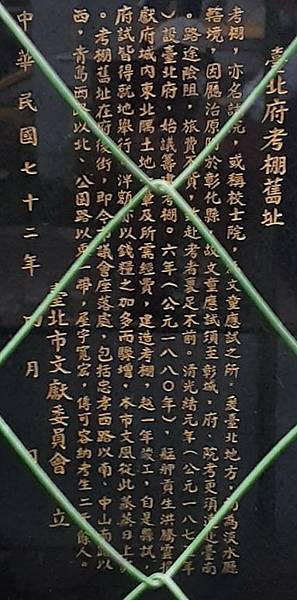 臺北府考棚舊址
考棚，亦名試院，或稱校士院，為文童應試之所。爰臺北地方，為淡水廳
轄境，因廳治原附於彰化縣，故文童應試須至彰城。府、院考更須遠赴臺南
。路途險阻，旅費不貲，故赴考者裹足不前。清光緒元年（公元一八七五年
）設臺北府，始議籌建考棚。六年（公元一八八〇年）艋舺貢生洪騰雲捐
獻府城內東北隅土地一及所需經費，建造考棚，越一年竣工，自是縣試、
府試皆得就地舉行，泮額亦以錢糧之加多而驟增，本市文風從此蒸蒸日上
。考棚舊址在府後街，即今市議會座落處，包括忠孝西路以南、中山南路以
西，青島西路以北、公園路以東一帶，屋宇寬宏，傳可容納考生二千餘人。
臺北市文獻委員會 立
中華民國七十二年 月 日